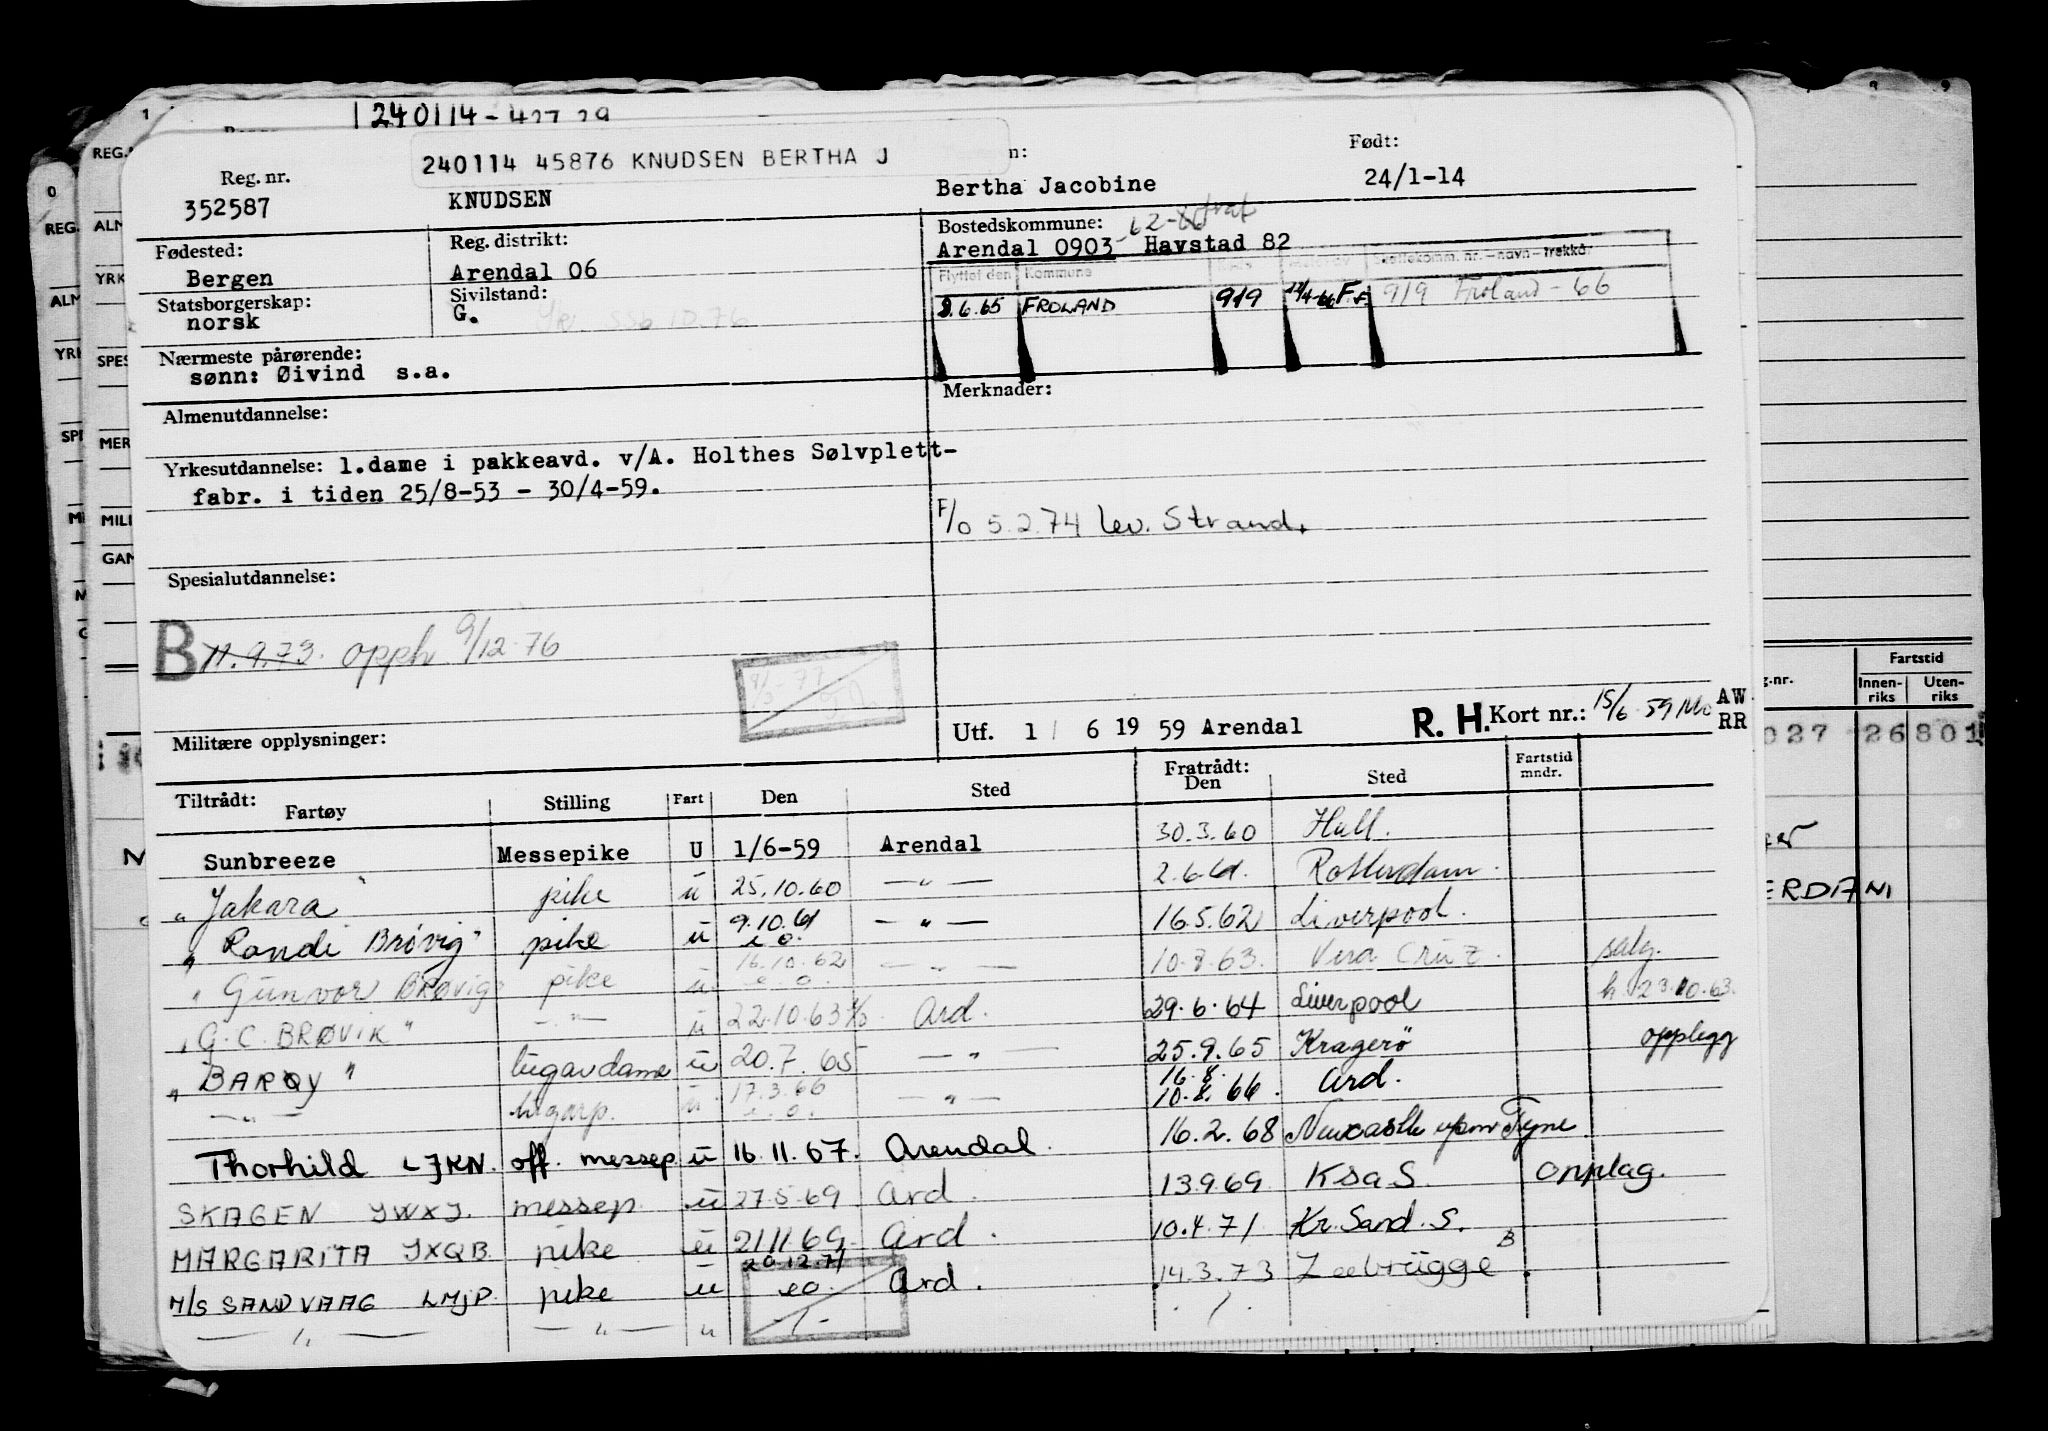 240114-427 29
240114 45876 KNUDSEN BERTHA J
Født:
Reg. nr.
352587 KNUDSEN Bertha Jacobine 24/1-14
Fødested: Reg. distrikt: Bostedskommune:
Bergen Arendal 06 Arendal 0903 Havstad 82
Statsborgerskap: Sivilstand: Flyttet den Kommune
norsk G. 8.6.65 FROLAND 919 919 Froland - 66
Nærmeste pårørende:
sønn: Øivind s.a.
Almenutdannelse: Merknader:
Yrkesutdannelse: 1.dame i pakkeavd. v/A. Holthes Sølvplett-
fabr. i tiden 25/8-53 - 30/4-59.
F/o 5.2.74 lev. Strand.
Spesialutdannelse:
B 11.9.73. opph 9/12-76
Militære opplysninger: Utf. 1/ 6 19 59 Arendal R. H. Kort nr.: 15/6-59 AW
RR
Tiltrådt: Fartøy Stilling Fart Den Sted Fratrådt: Den Sted Fartstid mndr.
Sunbreeze Messepike U 1/6-59 Arendal 30.3.60 Hull.
" Jakara pike u 25.10.60 — " — 2.6.61. Rotterdam.
" Randi Brøvig" pike u 9.10.61 e.o. — " — 16.5.62 Liverpool.
" Gunvor Brøvig pike u 16.10.62 e.o. — " — 10.8.63. Vera Cruz. salg.
" G.C. BRØVIK" — " — u 22.10.63 Ard. 29.6.64 Liverpool h 23.10.63.
" BARØY" lugardame u 20.7.65 — " — 25.9.65 Kragerø opplegg
— " — lugarp. u 17.3.66 e.o. — " — 16.8. 10.8.66. Ard.
Thorhild LJKN. off. messep. u 16.11.67. Arendal. 16.2.68 Newcastle upon Tyne
SKAGEN JWXJ. messep. u 27.5.69 Ard. 13.9.69 KsaS. Opplag.
MARGARITA JXQB. pike u 21.11.69. Ard. 10.4.71. Kr. Sand. S.
M/S SANDVAAG LMJP. pike u 20.12.71 eo Ard. 14.3.73 Zeebrügge B
— " — — " — u - / - . / .
REG.
ALM
YRK
SPES
MER
MILI
GAN
Fartstid
g.-nr. Innen-riks Uten-riks
027 26 801
ERDANI